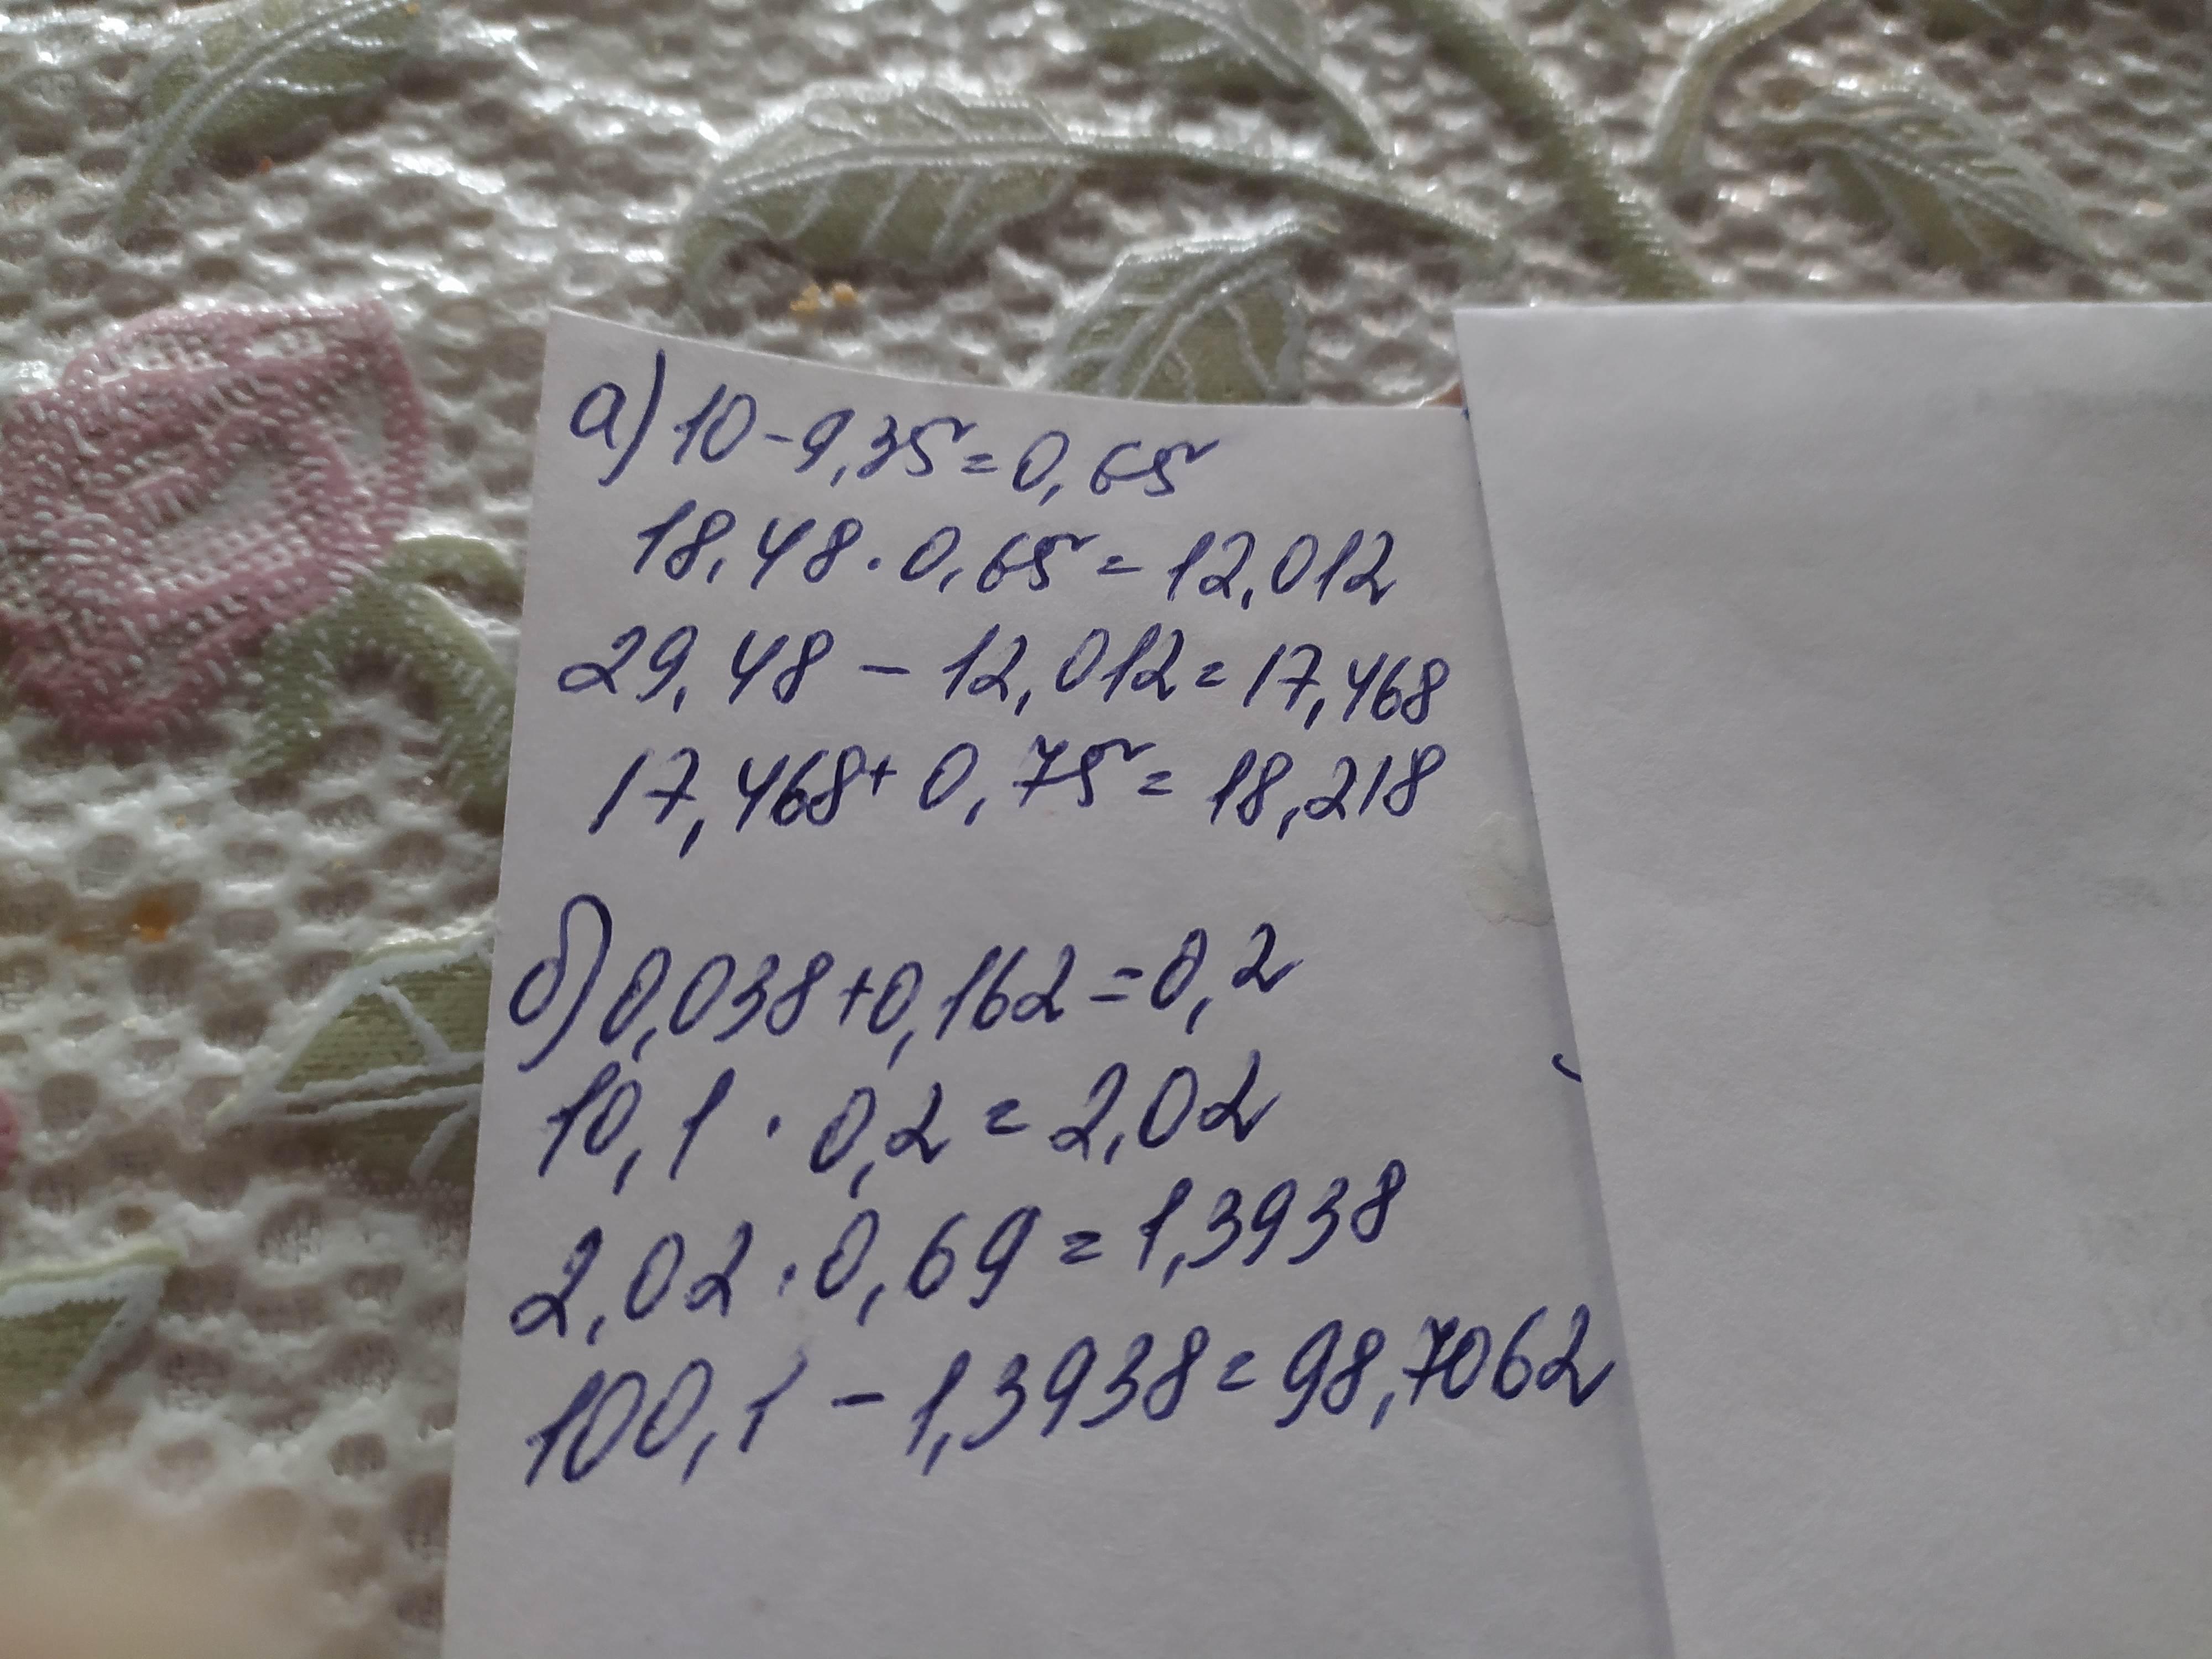 а) 10-9,35=0,65
18,48·0,65=12,012
29,48 - 12,012=17,468
17,468+0,75=18,218
б) 0,038+0,162=0,2
10,1 · 0,2=2,02
2,02·0,69=1,3938
100,1 - 1,3938=98,7062